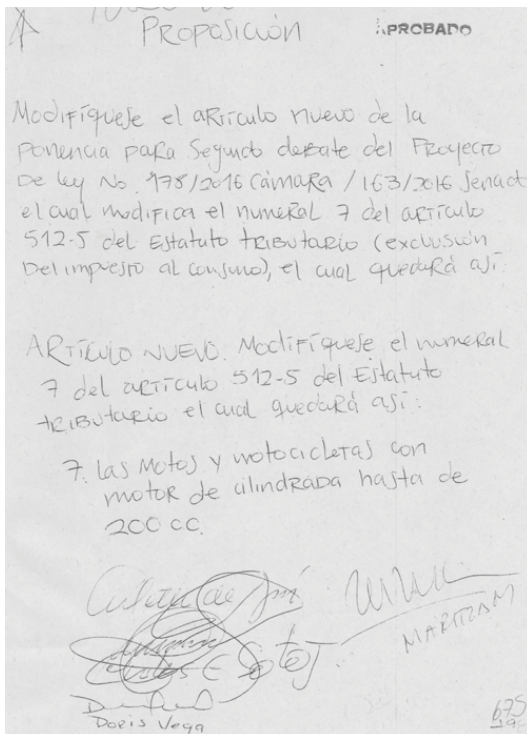 PROPOSICIÓN
APROBADO
Modifíquese el artículo nuevo de la
ponencia para segundo debate del Proyecto
De ley No. 178/2016 Cámara / 163/2016 Senado
el cual modifica el numeral 7 del artículo
512-5 del Estatuto tributario (exclusión
Del impuesto al consumo), el cual quedará así:
ARTÍCULO NUEVO. Modifíquese el numeral
7 del artículo 512-5 del Estatuto
tributario el cual quedará así:
7. las Motos y motocicletas con
motor de cilindrada hasta de
200 CC.
Doris Vega